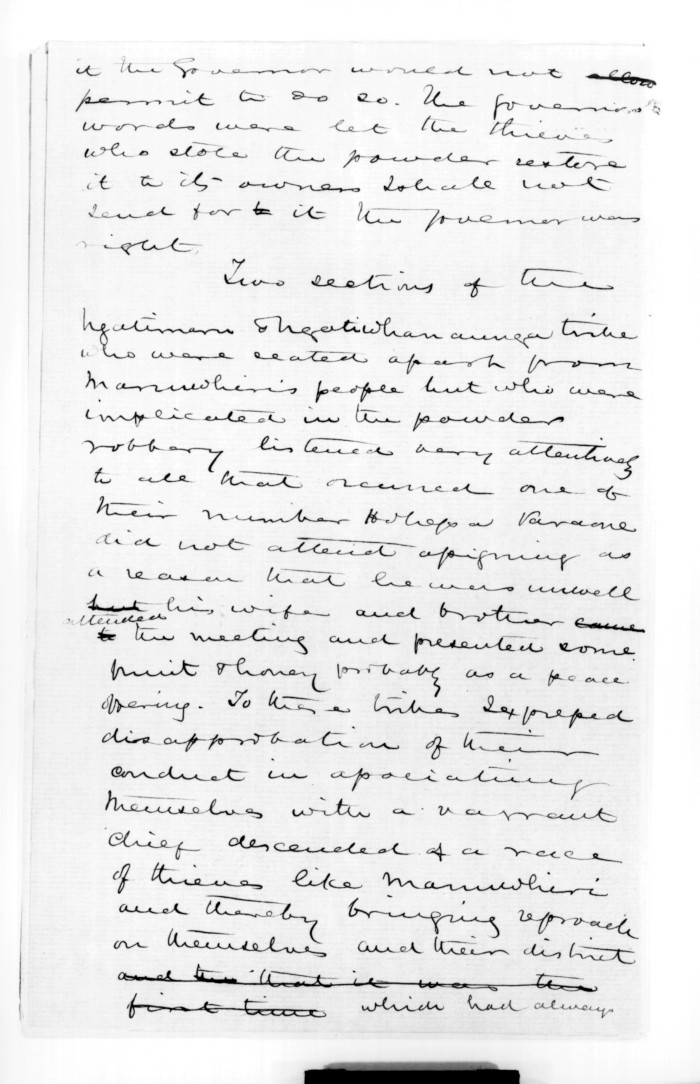 it the Governor would not allow
permit to do so. The governors
words were let the thieves
who stole the powder restore
it to its owners I shall not
send for to it the governor was
right.
Two sections of the
Ngatimaru & Ngatiwhanaunga tribe
who were seated apart from
Maruwheri's people but who were
implicated in the powder
robbery listened very attentively
to all that occurred one of
their number Hohepa Paraone
did not attend assigning as
a reason that he was unwell
but his wife and brother came
attended
to the meeting and presented some
fruit & honey probably as a peace
offering. To these tribes I expressed
disapprobation of their
conduct in associating
themselves with a vagrant
chief descended of a race
of thieves like Maruwheri
and thereby bringing reproach
on themselves and their district
and this that it was the
first time which had always